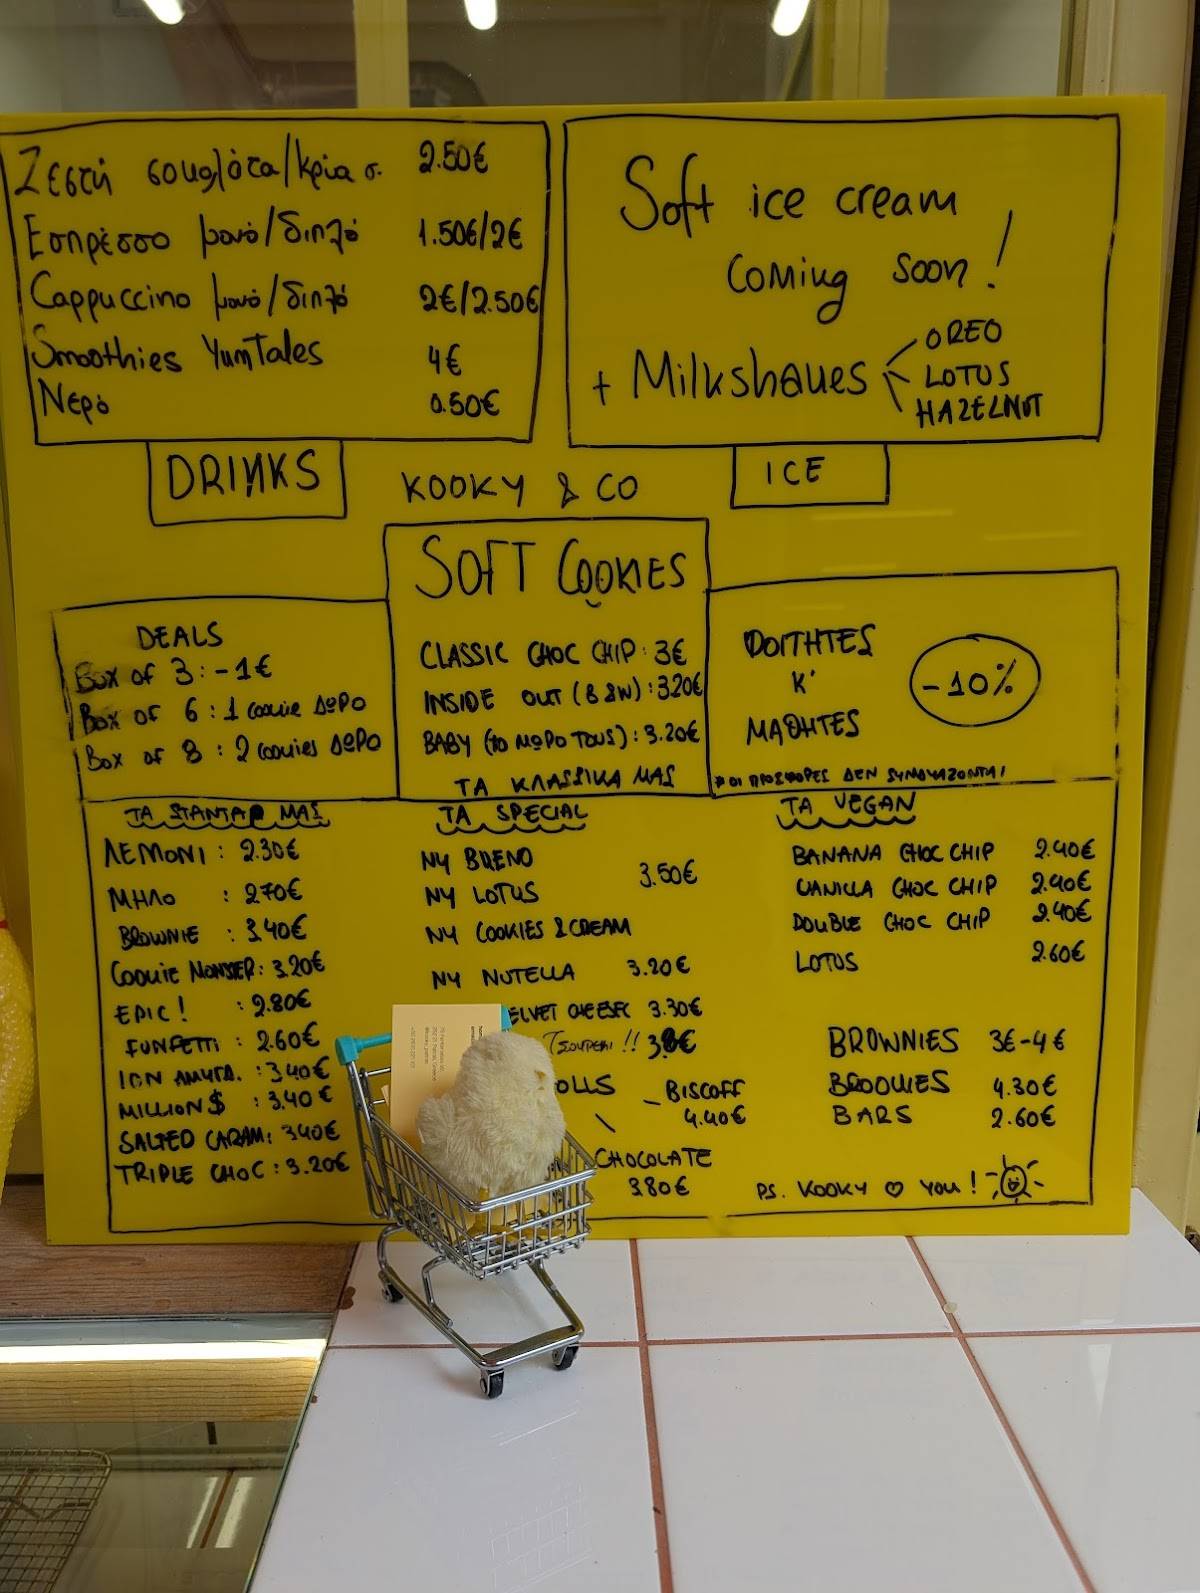 Ζεστή σοκολάτα/κρία σ. 2.50€
Εσπρέσσο μονό/διπλό 1.50€/2€
Cappuccino μονό/διπλό 2€/2.50€
Smoothies YumTales 4€
Νερό 0.50€
DRINKS
Soft ice cream
coming soon!
+ Milkshakes
OREO
LOTUS
HAZELNUT
ICE
KOOKY & CO
SOFT COOKIES
DEALS
Box of 3: -1€
Box of 6: 1 cookie ΔΩΡΟ
Box of 8: 2 cookies ΔΩΡΟ
CLASSIC CHOC CHIP: 3€
INSIDE OUT (B&W): 3.20€
BABY (το ΜΩΡΟ ΤΟUS): 3.20€
ΤΑ ΚΛΑSSΙΚΑ ΜΑS
ΦΟΙΤΗΤΕS
Κ'
ΜΑΘΗΤΕS
-10%
*ΟΙ ΠΡΟSΦΟΡΕS ΔΕΝ SΥΝΔΥΑΖΟΝΤΑΙ
ΤΑ SΤΑΝΤΑΡ ΜΑS
ΛΕΜΟΝΙ: 2.30€
ΜΗΛΟ : 2.70€
BROWNIE : 3.40€
COOKIE MONSTER: 3.20€
EPIC! : 2.80€
FUNFETTI : 2.60€
ION ΑΜΥΓΔ. : 3.40€
MILLION$ : 3.40€
SALTED CARAM: 3.40€
TRIPLE CHOC: 3.20€
ΤΑ SPECIAL
NY BUENO
NY LOTUS 3.50€
NY COOKIES & CREAM
NY NUTELLA 3.20€
ELVET CHEESEC 3.30€
ΤSΟΥΡΕΚΙ!!
OLLS
BISCOFF
4.40€
CHOCOLATE
3.80€
ΤΑ VEGAN
BANANA CHOC CHIP 2.40€
VANILLA CHOC CHIP 2.40€
DOUBLE CHOC CHIP 2.40€
LOTUS 2.60€
BROWNIES 3€-4€
BROOKIES 4.30€
BARS 2.60€
PS. KOOKY ♡ YOU!